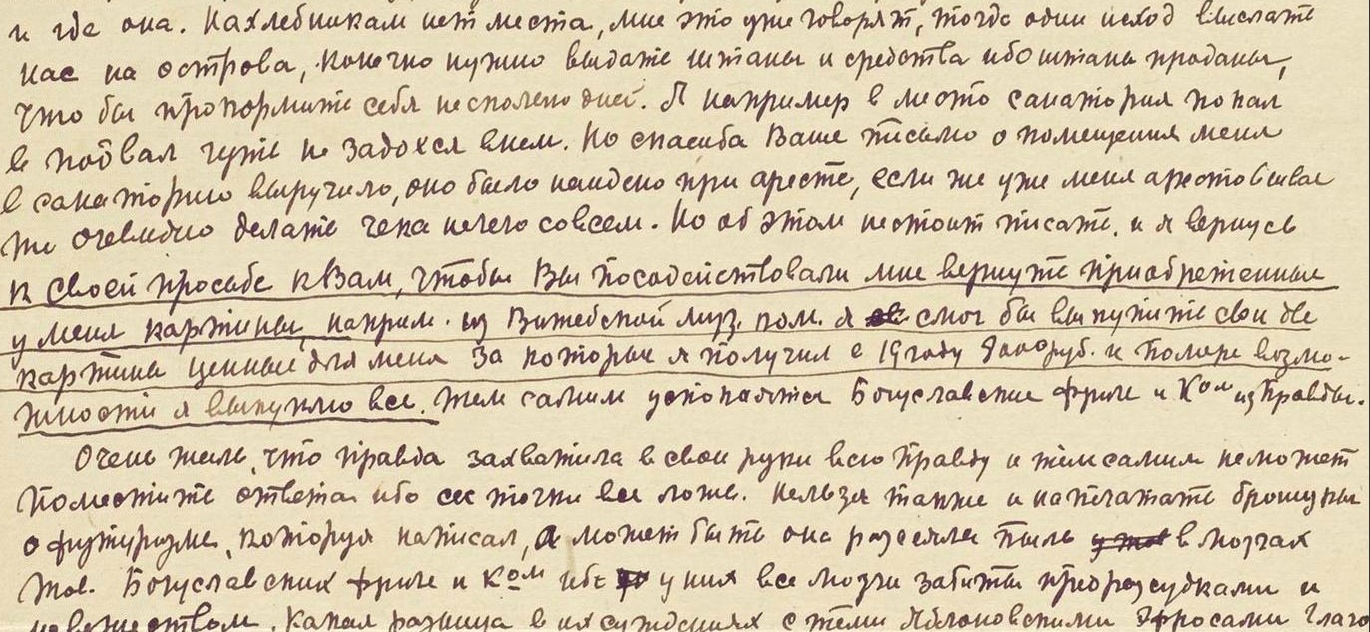 и где она. Нахлебникам нет места, мне это уже говорят, тогда один исход выслать
нас на острова, конечно нужно выдать штаны и средства ибо штаны проданы,
что бы прокормить себя несколько дней. Я например в место санатория попал
в подвал чуть не задохся внем. Но спасиба Ваше письмо о помещении меня
в санаторию выручило, оно было найдено при аресте, если же уже меня арестовывать
то очевидно делать чека нечего совсем. Но об этом нестоит писать, и я вернусь
к своей просьбе к Вам, чтобы Вы посодействовали мне вернуть приобретенные
у меня картины, наприм. из Витебской муз. ком. я смог бы выкупить свои две
картины ценные для меня за которые я получил в 19 году руб. и по мере возмо-
жности я выкуплю все. Тем самим успокоятся Богуславские Фриче и Ком из Правды.
Очень жаль, что правда захватила в свои руки всю Правду и тем самим неможет
поместить ответа ибо с их точки все ложь. Нельзя также и напечатать брошуры
о футуризме, которую написал, а может быть она разсеяла пыль в мозгах
тов. Богуславских Фриче и Ком ибо у них все мозги забиты предразсудками и
невежеством. Какая разница в их суждениях с теми Яблоновскими Эфросами